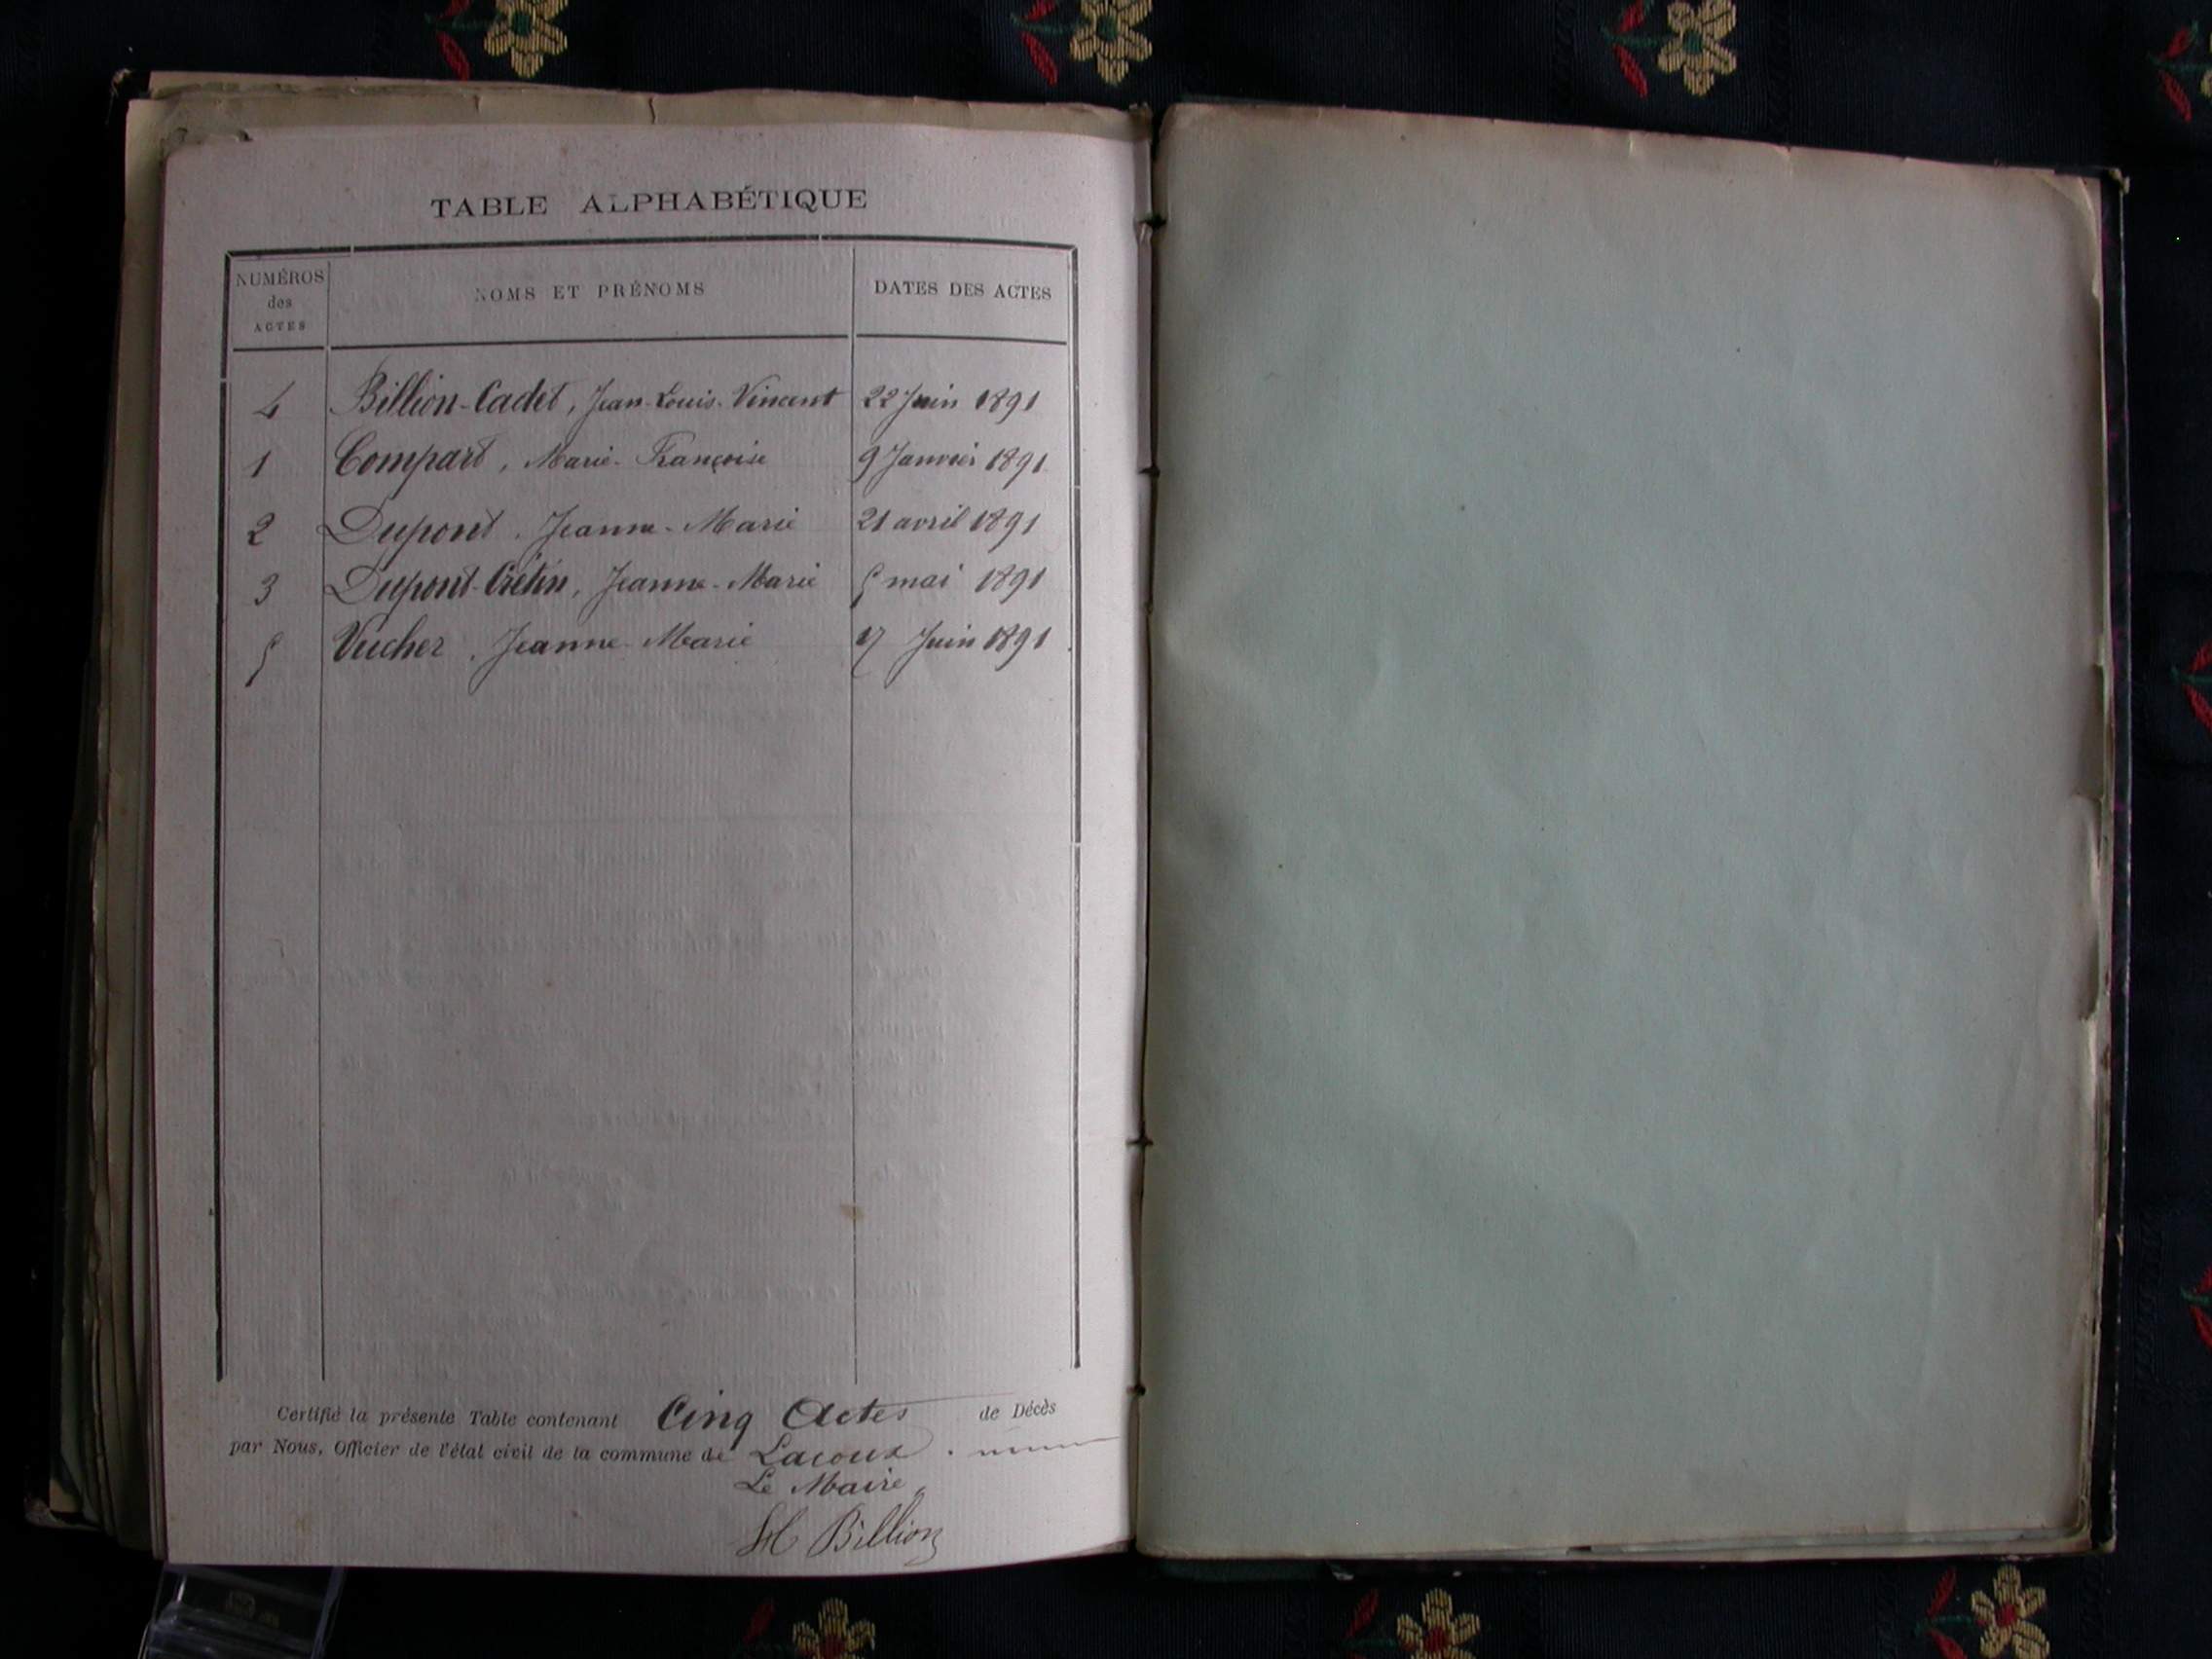 TABLE ALPHABÉTIQUE
NUMÉROS des ACTES NOMS ET PRÉNOMS DATES DES ACTES
4 Billion-Cadet, Jean-Louis-Vincent 22 Juin 1891
1 Compart, Marie-Françoise 9 Janvier 1891
2 Dupont, Jeanne-Marie 21 avril 1891
3 Dupont-Crétin, Jeanne-Marie 5 mai 1891
5 Vucher, Jeanne-Marie Juin 1891
Certifié la présente Table contenant Cinq Actes de Décès
par Nous, Officier de l'état civil de la commune de Lacoux.
Le Maire,
Billion